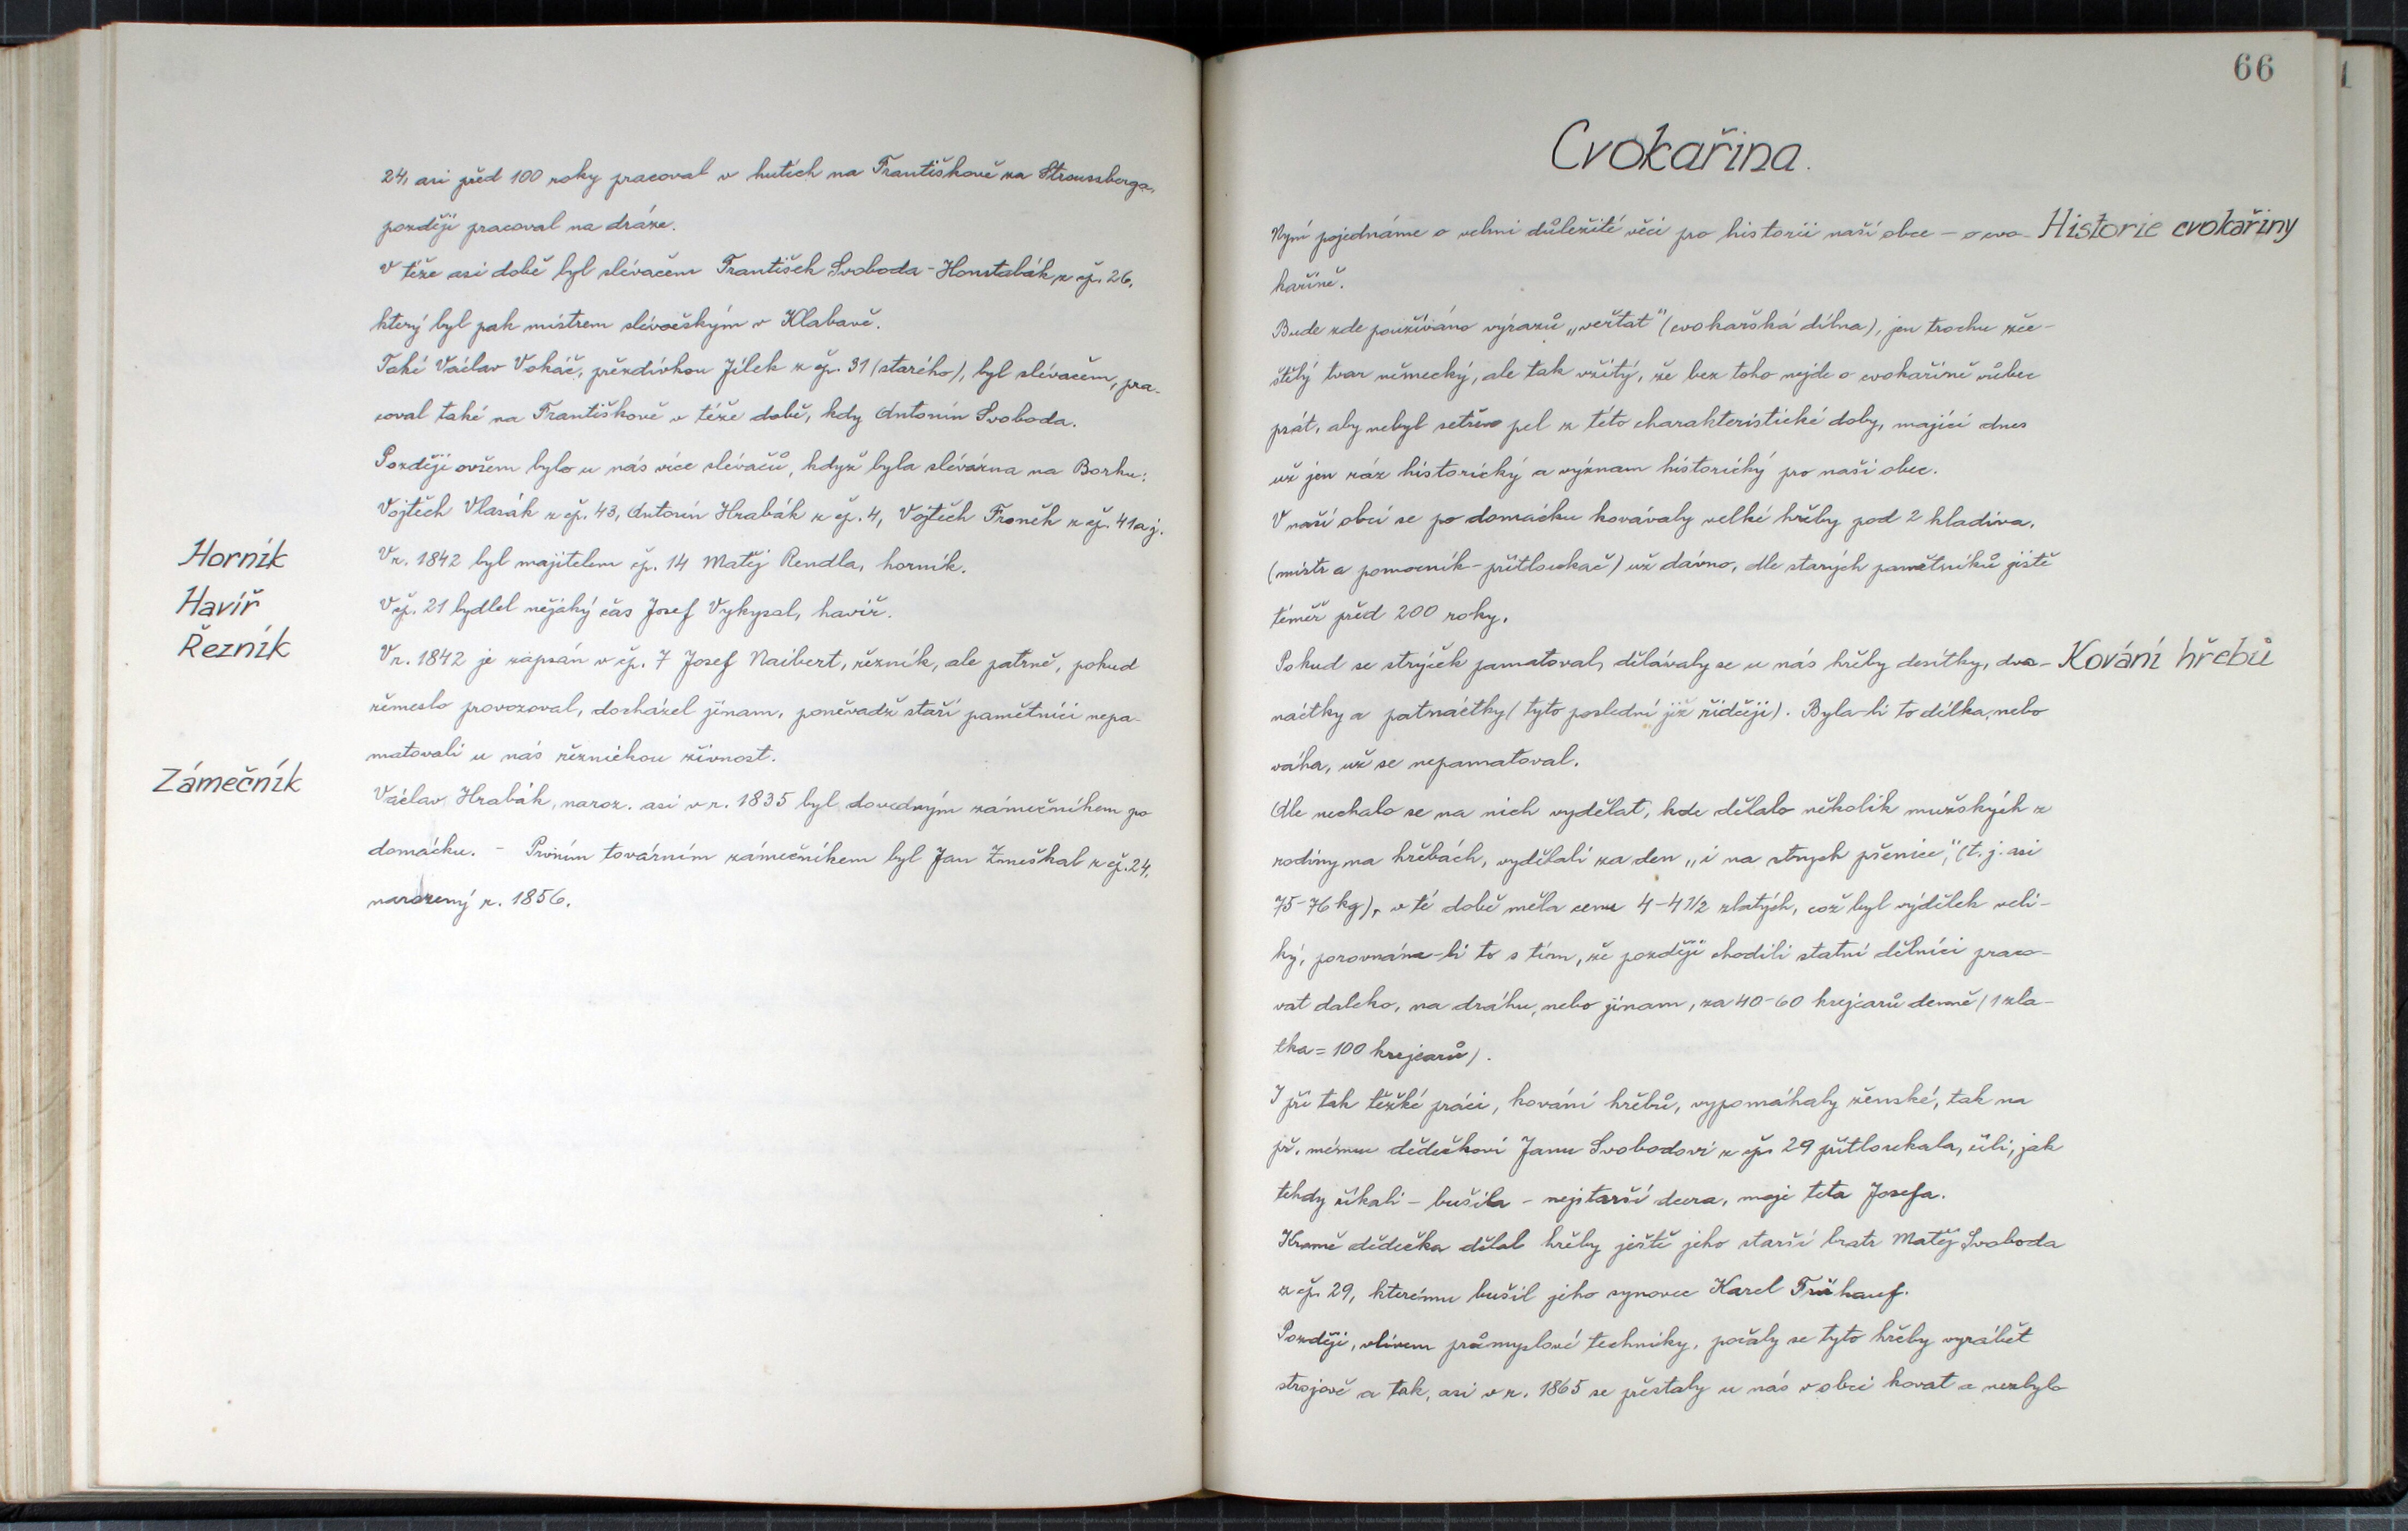 24, asi před 100 roky pracoval v hutích na Františkově za Stroussberga,
později pracoval na dráze.
V téže asi době byl slévačem František Svoboda-Honstabák z čp. 26,
který byl pak mistrem slévačským v Klabavě.
Také Václav Vokáč, přezdívkou Jílek z čp. 31 (starého), byl slévačem, pra-
coval také na Františkově v téže době, kdy Antonín Svoboda.
Později ovšem bylo u nás více slévačů, když byla slévárna na Borku:
Vojtěch Vlasák z čp. 43, Antonín Hrabák z čp. 4, Vojtěch Froněk z čp. 41 a j.
Horník
V r. 1842 byl majitelem čp. 14 Matěj Rendla, horník.
Havíř
V čp. 21 bydlel nějaký čas Josef Vykypal, havíř.
Řezník
V r. 1842 je zapsán v čp. 7 Josef Naibert, řezník, ale patrně, pokud
řemeslo provozoval, docházel jinam, poněvadž staří pamětníci nepa-
matovali u nás řeznickou živnost.
Zámečník
Václav Hrabák, naroz. asi v r. 1835 byl dovedným zámečníkem po
domácku. - Prvním továrním zámečníkem byl Jan Zmeškal z čp. 24,
narozený r. 1856.
66
Cvokařina.
Historie cvokařiny
Nyní pojednáme o velmi důležité věci pro historii naší obce - o cvo-
kařině.
Bude zde používáno výrazů „veřtat" (cvokařská dílna), jen trochu zče-
štělý tvar německý, ale tak vžitý, že bez toho nejde o cvokařině vůbec
psát, aby nebyl setřen pel z této charakteristické doby, mající dnes
už jen ráz historický a význam historický pro naši obec.
V naší obci se po domácku kovávaly velké hřeby pod 2 kladiva,
(mistr a pomocník-přitloukač) už dávno, dle starých pamětníků jistě
téměř před 200 roky.
Kování hřebů
Pokud se strýček pamatoval, dělávaly se u nás hřeby desítky, dva-
náctky a patnáctky (tyto poslední již řidčeji). Byla-li to délka, nebo
váha, už se nepamatoval.
Ale nechalo se na nich vydělat, kde dělalo několik mužských z
rodiny na hřebách, vydělali za den „i na strych pšenice", (t. j. asi
75-76 kg), v té době měla cenu 4-4 1/2 zlatých, což byl výdělek veli-
ký, porovnáme-li to s tím, že později chodili statní dělníci praco-
vat daleko, na dráhu, nebo jinam, za 40-60 krejcarů denně (1 zla-
tka = 100 krejcarů).
I při tak těžké práci, kování hřebů, vypomáhaly ženské, tak na
př. mému dědečkovi Janu Svobodovi z čp. 29 přitloukala, čili, jak
tehdy říkali - bušila - nejstarší dcera, moje teta Josefa.
Kromě dědečka dělal hřeby ještě jeho starší bratr Matěj Svoboda
z čp. 29, kterému bušil jeho synovec Karel Frühauf.
Později, vlivem průmyslové techniky, počaly se tyto hřeby vyrábět
strojově a tak, asi v r. 1865 se přestaly u nás v obci kovat a nezbylo